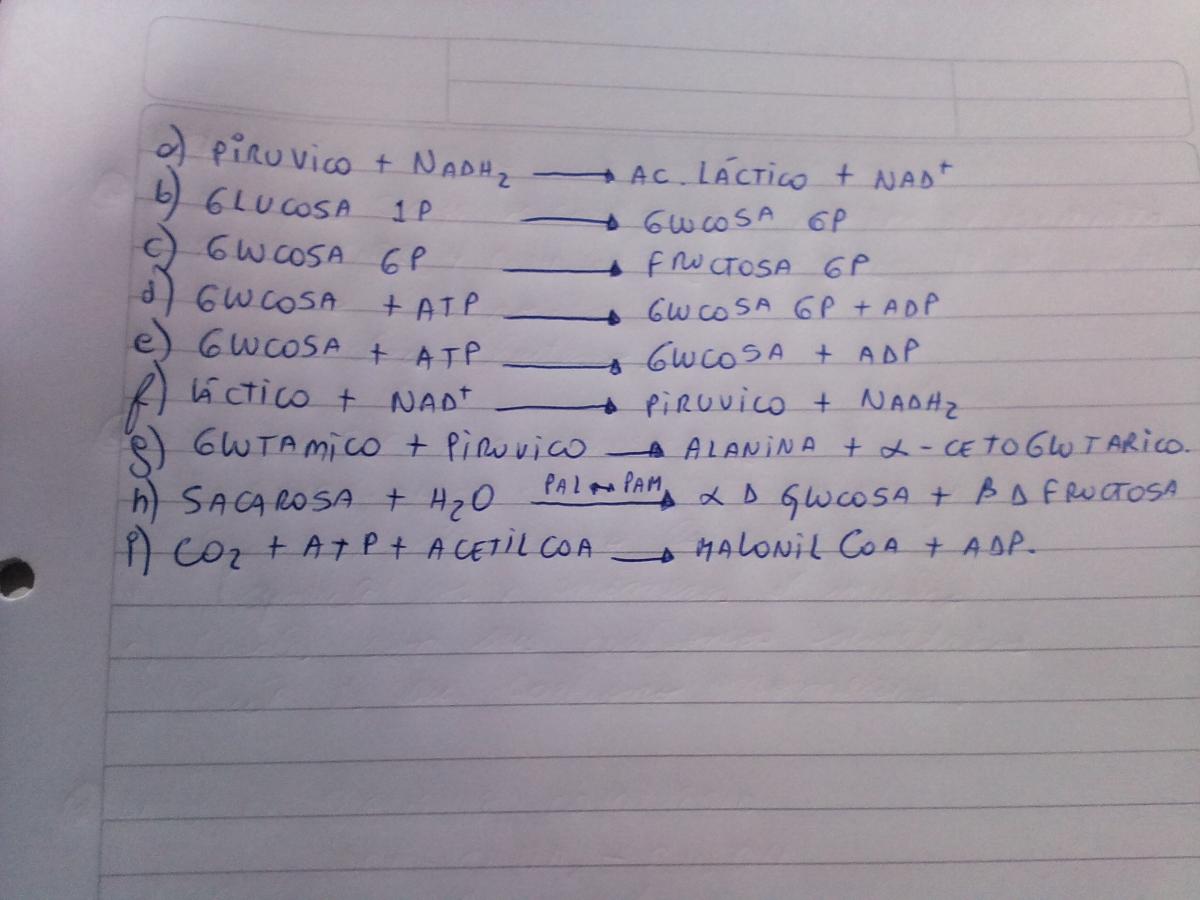 a) PiRUVico + NADH₂ → AC. LÁCTICO + NAD⁺
b) GLUCOSA 1P → GLUCOSA 6P
c) GLUCOSA 6P → FRUCTOSA 6P
d) GLUCOSA + ATP → GLUCOSA 6P + ADP
e) GLUCOSA + ATP → GLUCOSA + ADP
f) LÁCTICO + NAD⁺ → PiRUVICO + NADH₂
g) GLUTAMICO + PiRUVICO → ALANINA + α-CETOGLUTARICO.
h) SACAROSA + H₂O PAL ↔ PAM → α D GLUCOSA + β D FRUCTOSA
i) CO₂ + ATP + ACETIL COA → MALONIL COA + ADP.